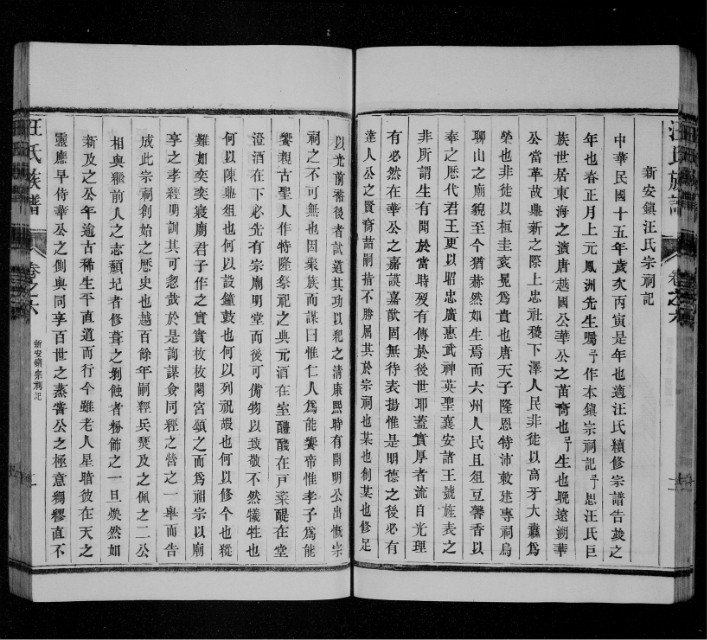 汪氏族譜
卷之六
新安鎮汪氏宗祠記
中華民國十五年歲次丙寅是年也適汪氏續修宗譜告竣之
年也春正月上元鳳洲先生囑予作本鎮宗祠記予思汪氏巨
族世居東海之濱唐越國公華公之苗裔也予生也晚遠朔華
公當革故鼎新之際上忠社稷下澤人民非徒以高牙大纛為
榮也非徒以桓圭袞冕為貴也唐天子隆恩特沛敕建專祠烏
聊山之廟貌至今猶赫然如生焉而六州人民且俎豆馨香以
奉之歷代君王更以昭忠廣惠武神英聖襄安諸王號旌表之
非所謂生有聞於當時歿有傳於後世耶蓋實厚者流自光理
有必然在華公之嘉謨嘉猷固無待表揚惟是明德之後必有
達人公之賢裔喆嗣指不勝屈其於宗祠也某也創某也修足
以光前裕後者試道其功以紀之清康熙時有開明公出慨宗
祠之不可無也因聚族而謀曰惟仁人為能饗帝惟孝子為能
饗親古聖人作特隆祭祀之典元酒在室醴醆在戶粢醍在堂
澄酒在下必先有宗廟明堂而後可備物以致敬不然犧牲也
何以陳鼎俎也何以設鐘鼓也何以列祝嘏也何以修今也從
難如奕奕寢廟君子作之實實枚枚閟宮頌之而為祖宗以廟
享之孝經明訓其可忽哉於是詢謀僉同經之營之一舉而告
成此宗祠創始之歷史也越百餘年嗣經兵燹及之佩之二公
相與繼前人之志頹圮者修葺之剝蝕者粉飾之一旦煥然如
新及之公年逾古稀生平直道而行今雖老人星暗彼在天之
靈應早侍華公之側與同享百世之蒸嘗公之極意綢繆直不
汪氏族譜
卷之六
新安鎮宗祠記